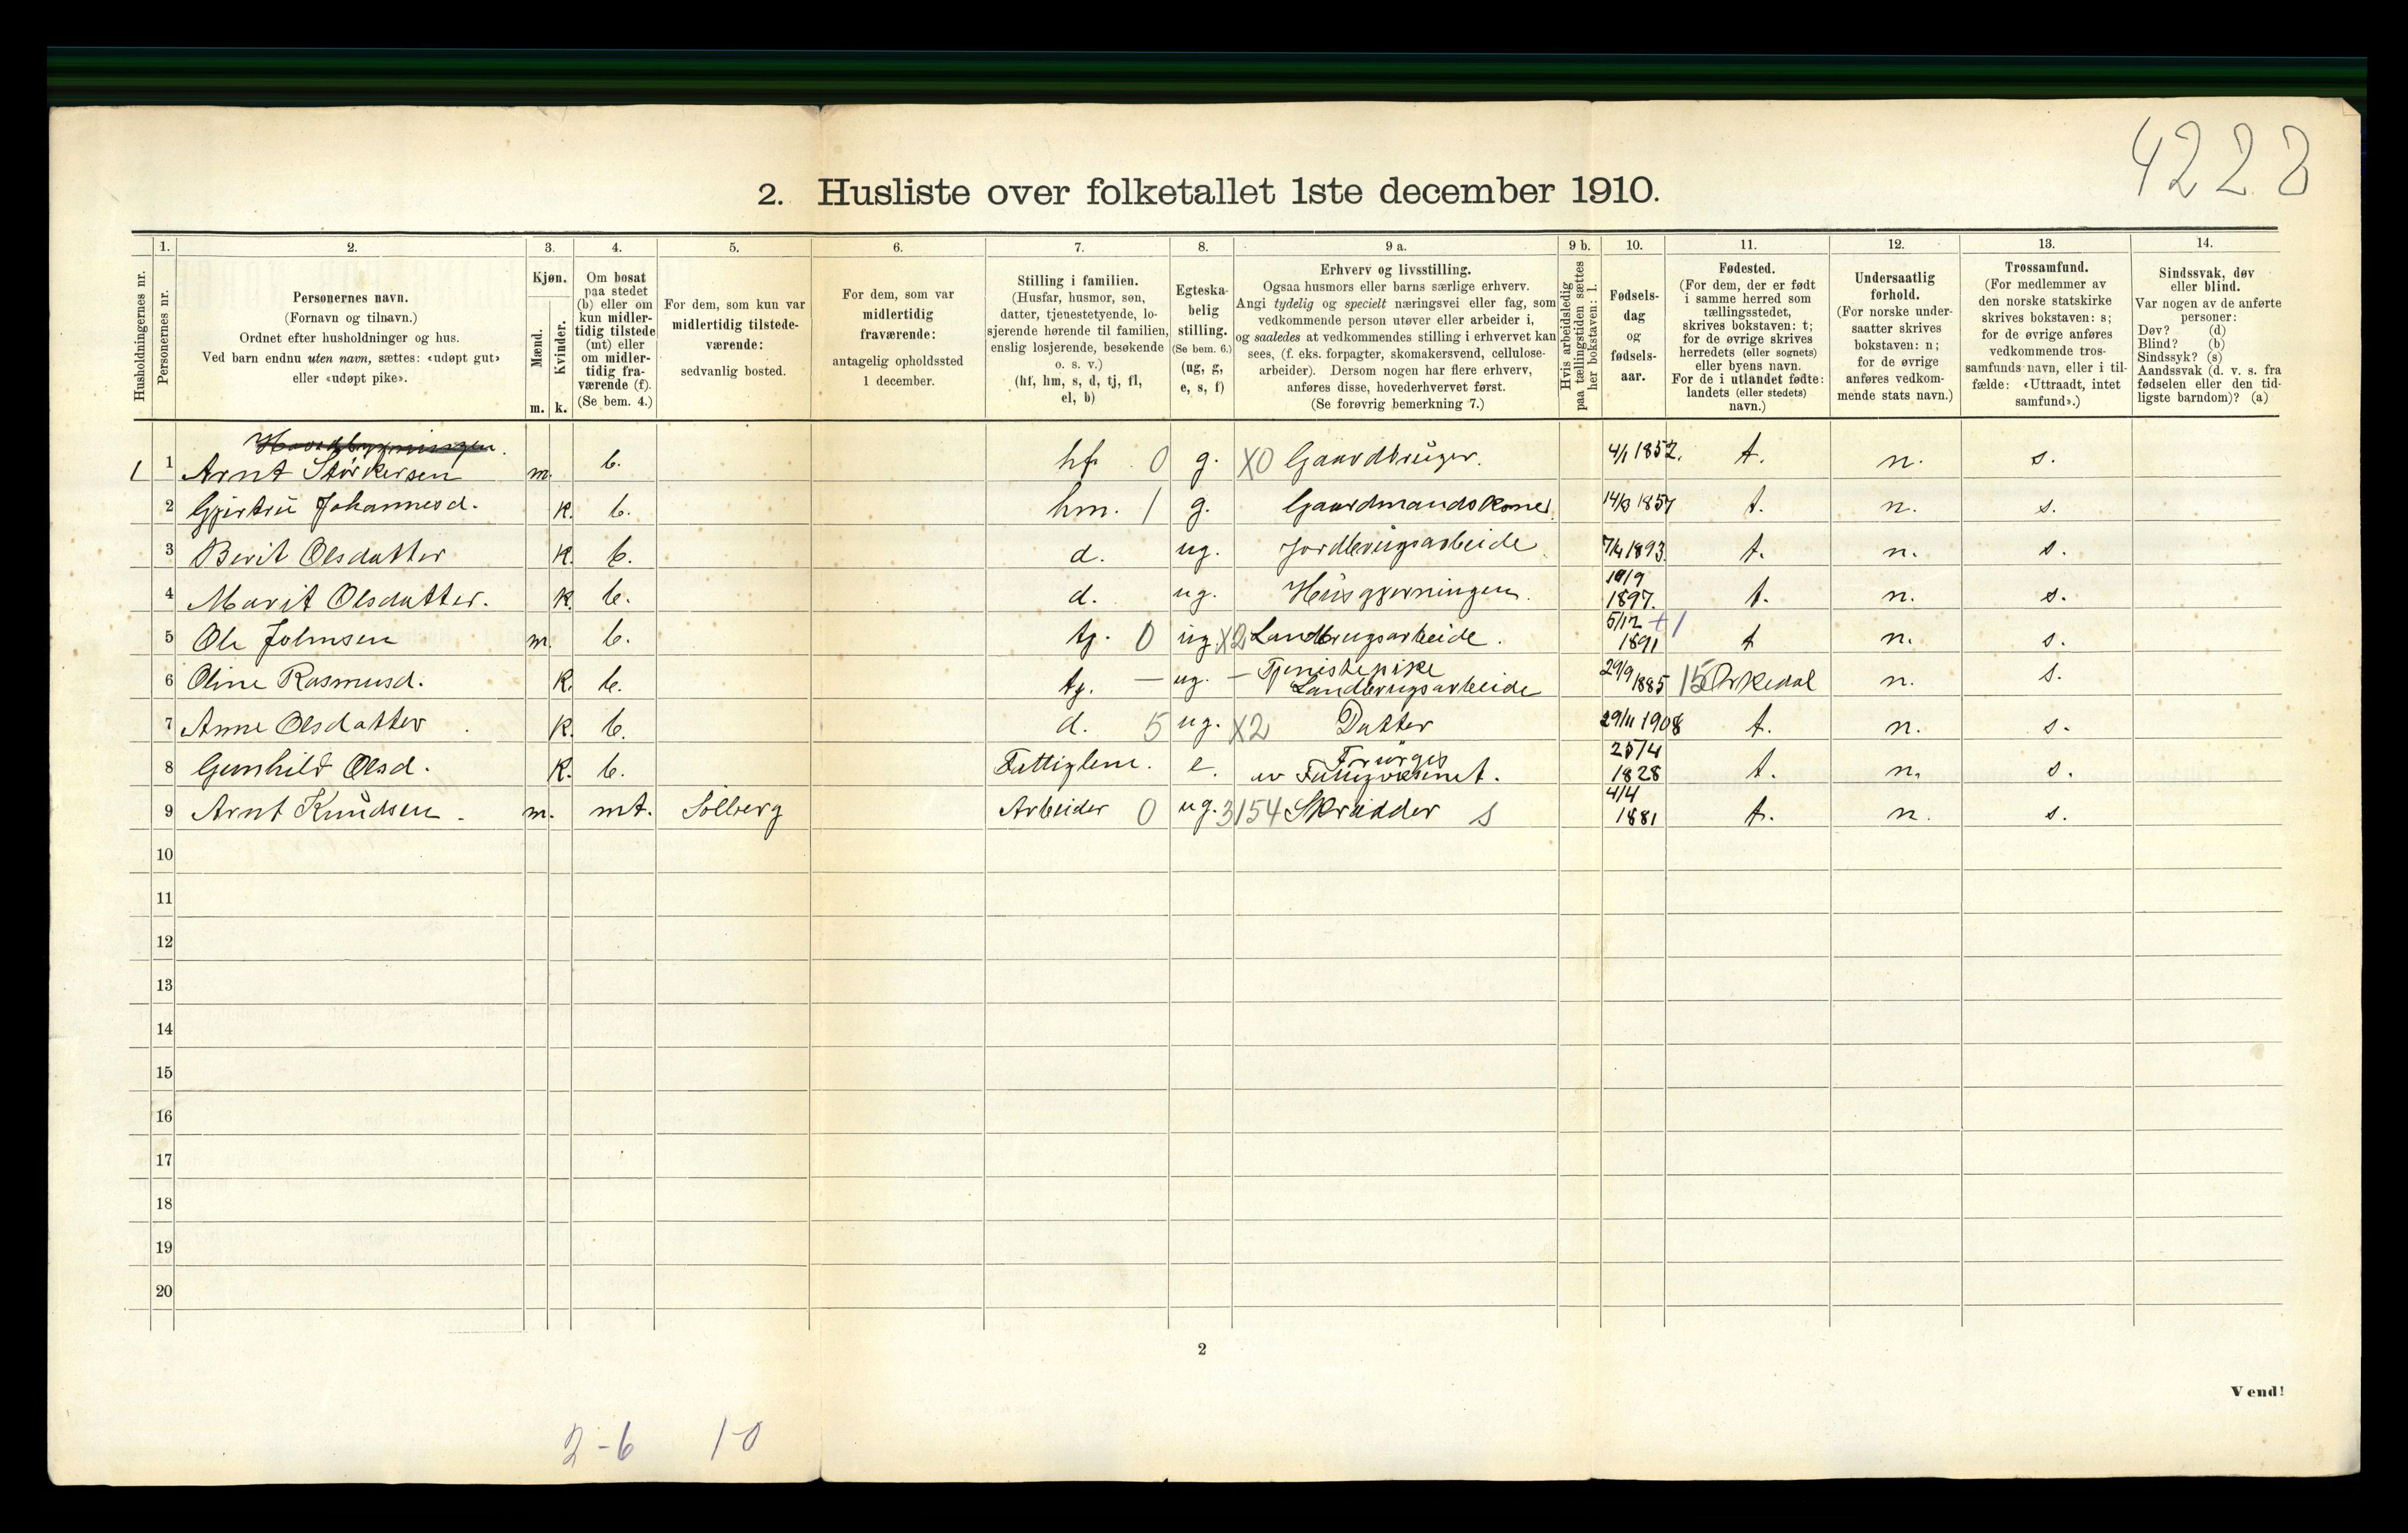 4223
2. Husliste over folketallet 1ste december 1910.
Husholdningernes nr.
1.
Personernes nr.
2.
Personernes navn.
(Fornavn og tilnavn.)
Ordnet efter husholdninger og hus.
Ved barn endnu uten navn, sættes: «udøpt gut»
eller «udøpt pike».
3.
Kjøn.
Mænd.
Kvinder.
m. k.
4.
Om bosat
paa stedet
(b) eller om
kun midler-
tidig tilstede
(mt) eller
om midler-
tidig fra-
værende (f).
(Se bem. 4.)
5.
For dem, som kun var
midlertidig tilstede-
værende:
sedvanlig bosted.
6.
For dem, som var
midlertidig
fraværende:
antagelig opholdssted
1 december.
7.
Stilling i familien.
(Husfar, husmor, søn,
datter, tjenestetyende, lo-
sjerende hørende til familien,
enslig losjerende, besøkende
o. s. v.)
(hf, hm, s, d, tj, fl,
el, b)
8.
Egteska-
belig
stilling.
(Se bem. 6.)
(ug, g,
e, s, f)
9 a.
Erhverv og livsstilling.
Ogsaa husmors eller barns særlige erhverv.
Angi tydelig og specielt næringsvei eller fag, som
vedkommende person utøver eller arbeider i,
og saaledes at vedkommendes stilling i erhvervet kan
sees, (f. eks. forpagter, skomakersvend, cellulose-
arbeider). Dersom nogen har flere erhverv,
anføres disse, hovederhvervet først.
(Se forøvrig bemerkning 7.)
9 b.
Hvis arbeidsledig
paa tællingstiden sættes
her bokstaven: l.
10.
Fødsels-
dag
og
fødsels-
aar.
11.
Fødested.
(For dem, der er født
i samme herred som
tællingsstedet,
skrives bokstaven: t;
for de øvrige skrives
herredets (eller sognets)
eller byens navn.
For de i utlandet fødte:
landets (eller stedets)
navn.)
12.
Undersaatlig
forhold.
(For norske under-
saatter skrives
bokstaven: n;
for de øvrige
anføres vedkom-
mende stats navn.)
13.
Trossamfund.
(For medlemmer av
den norske statskirke
skrives bokstaven: s;
for de øvrige anføres
vedkommende tros-
samfunds navn, eller i til-
fælde: «Uttraadt, intet
samfund».)
14.
Sindssvak, døv
eller blind.
Var nogen av de anførte
personer:
Døv? (d)
Blind? (b)
Sindssyk? (s)
Aandssvak (d. v. s. fra
fødselen eller den tid-
ligste barndom)? (a)
Hovedbygningen.
1 1 Arnt Størkersen m. b. hf. 0 g. X0 Gaardbruger. 4/1 1852. t. n. s.
2 Gjertru Johannesd. k. b. hm. 1 g. Gaardmandskone. 14/3 1857 t. n. s.
3 Berit Olsdatter k. b. d. ug. Jordbrugsarbeide. 7/4 1893 t. n. s.
4 Marit Olsdatter. k. b. d. ug. Husgjerningen. 19/9 1897. t. n. s.
5 Ole Johnsen m. b. tj. 0 ug X2 Landbrugsarbeide. 5/12 1891 +1 t n. s.
6 Oline Rasmusd. k. b. tj. — ug. — Tjenestepike Landbrugsarbeide 29/9 1885 15 Orkedal n. s.
7 Anne Olsdatter k. b. d. 5 ug. X2 Datter 29/11 1908 t. n. s.
8 Gunhild Olsd. k. b. Fattiglem. e. Forsørges av Fattigvæsenet. 25/4 1828 t. n. s.
9 Arnt Knudsen. m. mt. Solberg Arbeider 0 ug. 3154 Skrædder s 4/4 1881 t. n. s.
10
11
12
13
14
15
16
17
18
19
20
2
Vend!
2-6 1-0